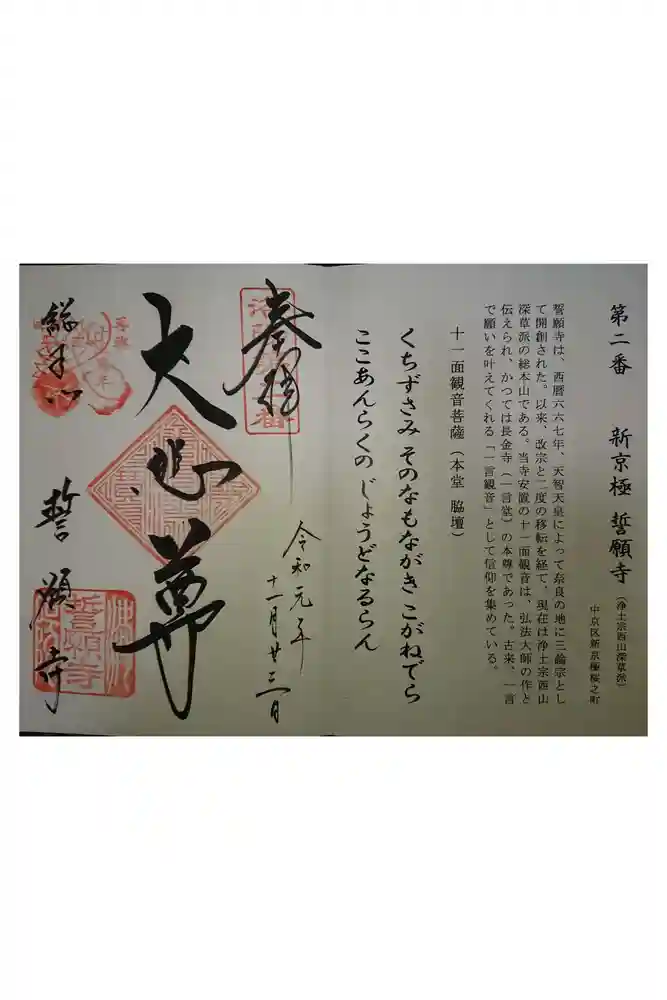 第二番 新京極 誓願寺
（浄土宗西山深草派）
中京区新京極桜之町
誓願寺は、西暦六六七年、天智天皇によって奈良の地に三論宗とし
て開創された。以来、改宗と二度の移転を経て、現在は浄土宗西山
深草派の総本山である。当寺安置の十一面観音は、弘法大師の作と
伝えられ、かつては長金寺（一言堂）の本尊であった。古来、一言
で願いを叶えてくれる「一言観音」として信仰を集めている。
十一面観音菩薩（本堂 脇壇）
くちずさみ そのなもながき こがねでら
ここあんらくの じょうどなるらん
奉拝
令和元年
十一月廿三日
大悲尊
総本山
誓願寺
誓願寺